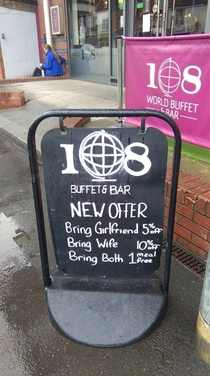 108
WORLD BUFFET
& BAR
108
BUFFET & BAR
NEW OFFER
Bring Girlfriend 5% OFF
Bring Wife 10% OFF
Bring Both 1 meal free